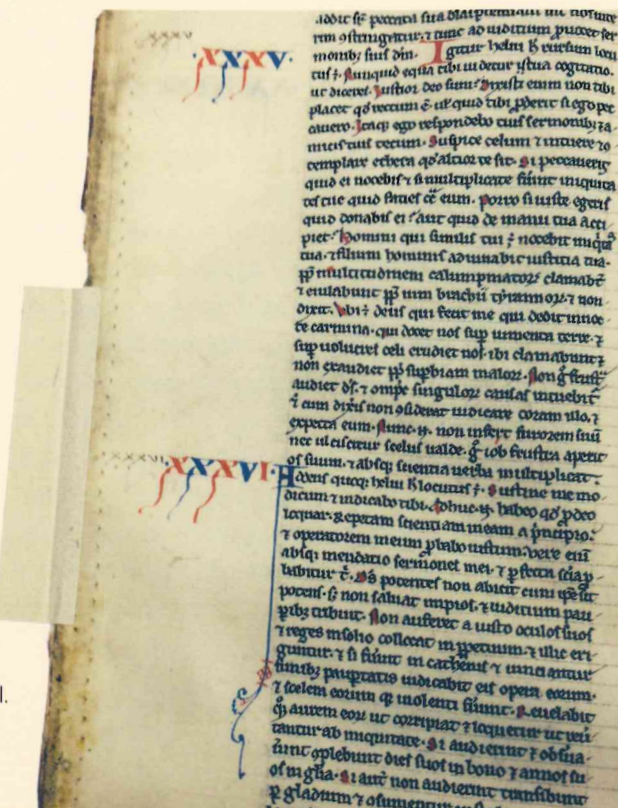 xxxv
XXXV.
rim ꝯstringatur, ⁊ tunc ad iuditium ꝓuocet ser
monibꝫ suis dm̅. Igitur heliu h̅ rursum locu
tus ÷. Nunquid equa tibi uidetur tua cogitatio.
ut diceres. Iustior deo sum? Dixisti enim non tibi
placet qd̕ rectum ÷. uł quid tibi ꝓderit si ego pec
cauero. Itaqꝫ ego respondebo tuis sermonibꝫ ⁊ a
micis tuis tecum. Suspice celum ⁊ intuere ⁊ ꝯ
templare ethera qd̕ altior te sit. Si peccaueris
quid ei nocebis ⁊ si multiplicate fuerint iniquita
tes tue quid facies ꝯ̅ eum. Porro si iuste egeris
quid donabis ei? aut quid de manu tua acci
piet? Homini qui similis tui ÷ nocebit
tua. ⁊ filium hominis adiuuabit iustitia tua.
ꝓp̅ multitudinem calumpniatorꝝ clamabt̅
⁊ eiulabunt ꝓp̅ uim brachii tyrannorꝝ. ⁊ non
dixit. Vbi ÷ deus qui fecit me qui dedit in noc
te carmina. qui docet nos sup̅ iumenta terre. ⁊
sup̅ uolucres celi erudiet nos. ibi clamabunt ⁊
non exaudiet ꝓp̅ supbiam malorꝝ. Non g̊ frustͣ
audiet ds̅. ⁊ omp̅s singulorꝝ causas intuebit᷑
⁊ cum dixeris non ꝯsiderat iudicare coram illo. ⁊
expecta eum. Nunc .n. non infert furorem suu̅
nec ulciscitur scelus ualde. g̊ iob frustra aperit
os suum. ⁊ absqꝫ scientia uerba multiplicat.
xxxvi
XXXVI.
Addens quoqꝫ heliu h̅ locutus ÷. Sustine me mo
dicum ⁊ indicabo tibi. Adhuc .n. habeo qd̕ ꝓ deo
loquar. Repetam scientiam meam a p̕ncipio.
⁊ operatorem meum ꝓbabo iustum. Vere eni̅
absqꝫ mendatio sermones mei. ⁊ ꝑfecta scia̅ ꝓ
babitur t̕. Ds̅ potentes non abicit cum ip̅e sit
potens. sꝫ non saluat impios. ⁊ iuditium pau
ꝑibꝫ tribuit. Non auferet a iusto oculos suos
⁊ reges in solio collocat in ꝑpetuum. ⁊ illic eri
guntur. ⁊ si fuerint in cathenis ⁊ uinciantur
funibꝫ paupertatis indicabit eis opera eorum.
⁊ scelera eorum qꝫ uiolenti fuerint. Reuelabit
qꝫ aurem eorꝝ ut corripiat ⁊ loquetur ut reu̕
tantur ab iniquitate. Si audierint ⁊ obserua
uerint ꝯplebunt dies suos in bono ⁊ annos su
os in glͣia. Si aut̅ non audierint transibunt
ꝑ gladium ⁊ ꝯsumentur
l.